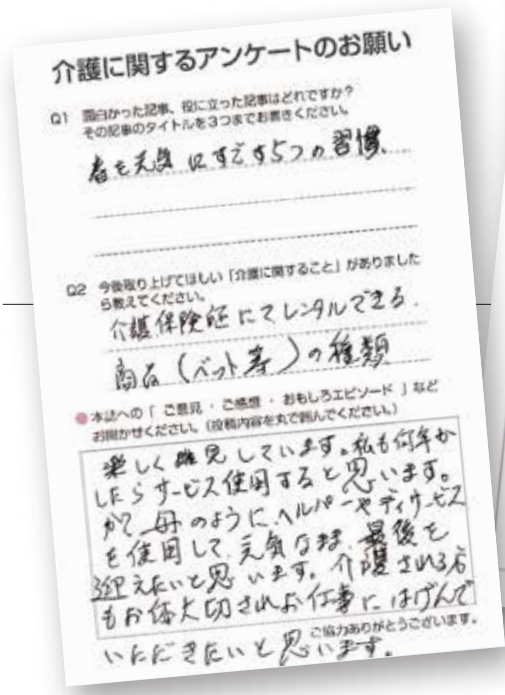 介護に関するアンケートのお願い
Q1 面白かった記事、役に立った記事はどれですか?
その記事のタイトルを3つまでお書きください。
春を元気にすごす5つの習慣、
Q2 今後取り上げてほしい「介護に関すること」がありました
ら教えてください。
介護保険証にてレンタルできる.
商品(ベット等)の種類
●本誌への「 ご意見 ・ ご感想 ・ おもしろエピソード 」など
お聞かせください。(投稿内容を丸で囲んでください。)
楽しく拝見しています。私も何年か
したらサービス使用すると思います。
が、母のように、ヘルパーやディサービス
を使用して元気なまま最後を
迎えたいと思います。介護される方
もお体大切されお仕事にはげんで
ご協力ありがとうございます。
いただきたいと思います。